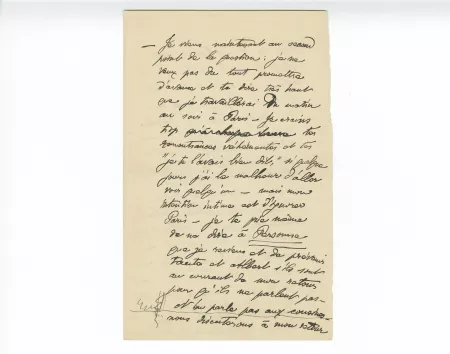 — Je viens maintenant au second
point de la question : je ne
veux pas du tout promettre
d'avance et te dire très haut
que je travaillerai du matin
au soir à Paris – Je crains
trop tes
remontrances véhémentes et tes
"je te l'avais bien dit," si quelque
jour j'ai le malheur d'aller
voir quelqu'un – mais mon
intention intime est d'ignorer
Paris – je te prie même
de ne dire à Personne
que je reviens et de prévenir
et Albert s'ils sont
au courant de mon retour
pour qu'ils ne parlent pas –
et n'en parle pas aux cousines
nous discuterons à mon retour